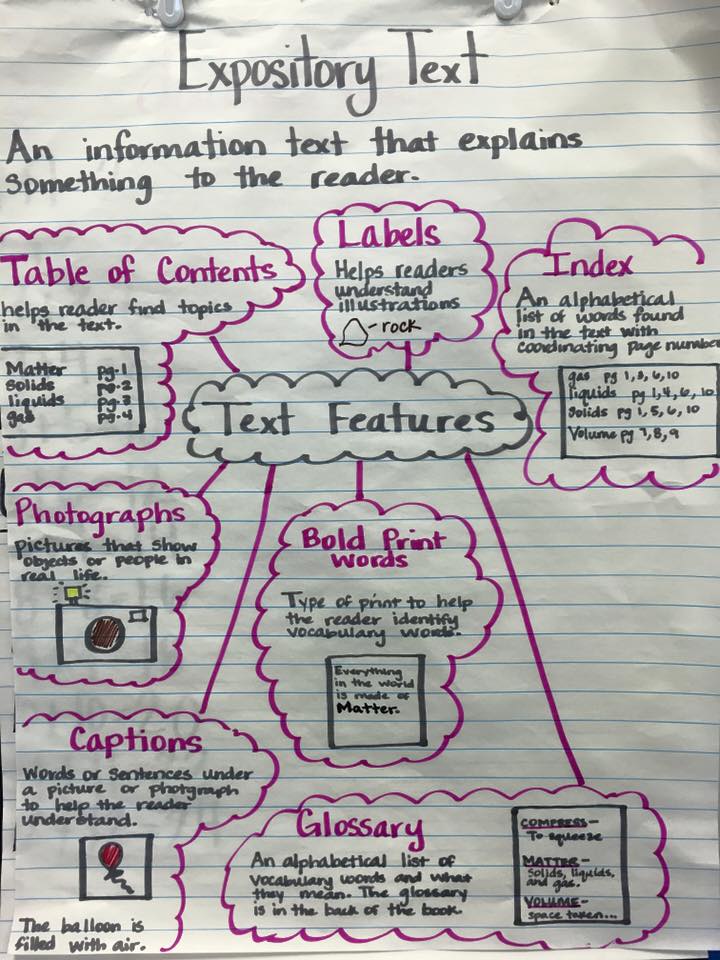 Expository Text
An information text that explains
something to the reader.
Table of Contents
helps reader find topics
in the text.
Matter pg.1
Solids pg.2
liquids pg.3
gas pg.4
Labels
Helps readers
understand
illustrations
- rock
Index
An alphabetical
list of words found
in the text with
coordinating page number
gas pg 1,3,6,10
liquids pg 1,4,6,10
Solids pg 1,5,6,10
Volume pg 7,8,9
Text Features
Photographs
pictures that show
objects or people in
real life.
Bold Print
words
Type of print to help
the reader identify
vocabulary words.
Everything
in the world
is made of
Matter.
Captions
Words or sentences under
a picture or photgraph
to help the reader
understand.
The balloon is
filled with air.
Glossary
An alphabetical list of
vocabulary words and what
they mean. The glossary
is in the back of the book.
COMPRESS-
To squeeze
MATTER-
Solids, liquids,
and gas.
VOLUME-
space taken...